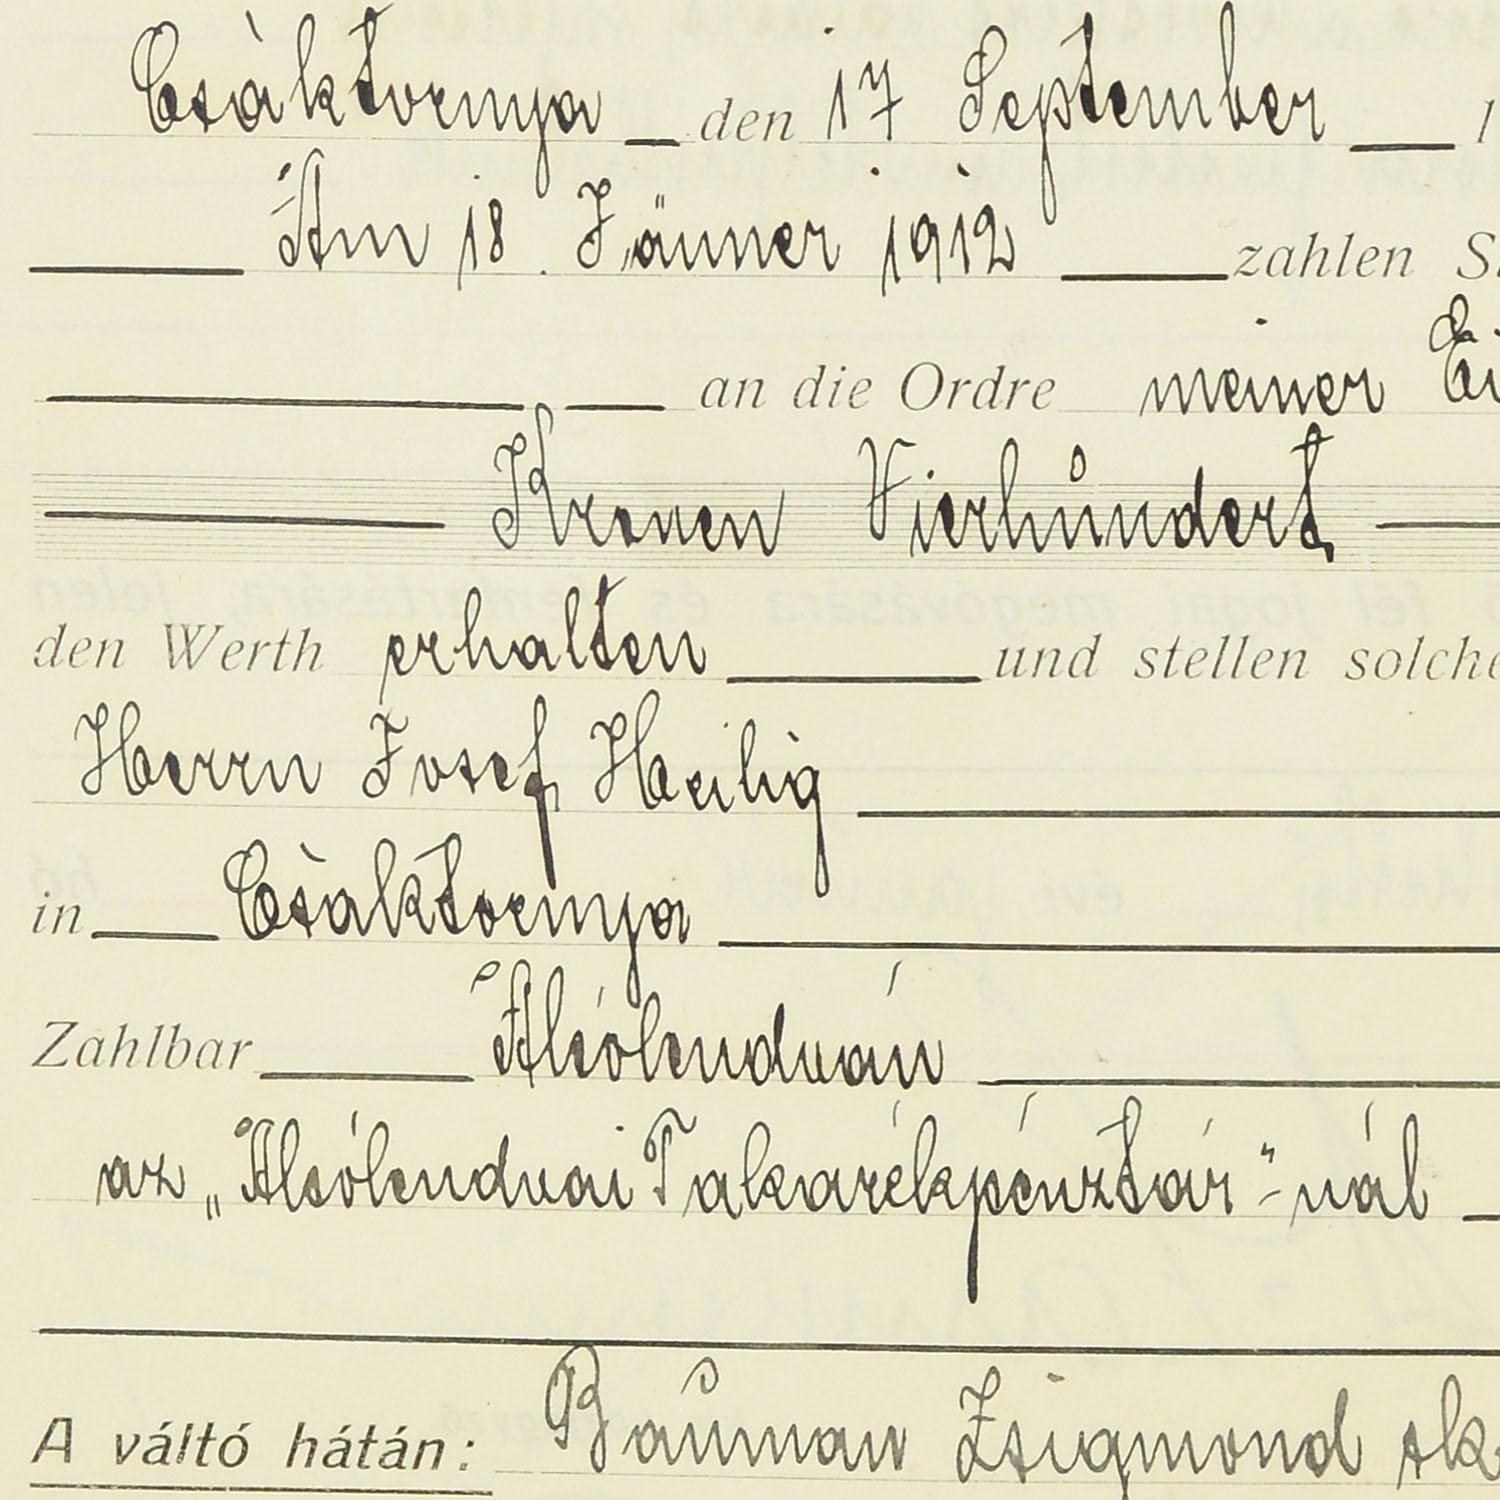 Csáktornya den 17 September 1
Am 18. Jänner 1912 zahlen
an die Ordre meiner
Kronen Vierhundert
den Werth erhalten und stellen solche
Herrn Josef Heilig
in Csáktornya
Zahlbar Alsólendván
az „Alsólendvai Takarékpénztár"-nál
A váltó hátán: Bauman Zsigmond sk.